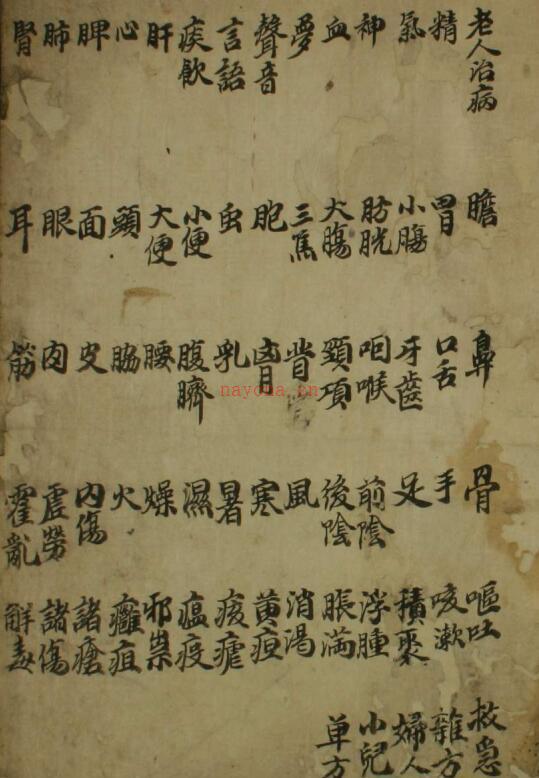 老人治病 精 氣 神 血 夢 聲音 言語 痰飲 肝 心 脾 肺 腎
膽 胃 小腸 肪胱 大腸 三焦 胞 虫 小便 大便 頭 面 眼 耳
鼻 口舌 牙齒 咽喉 頸項 背 胷 乳 腹臍 腰 脇 皮 肉 筋
骨 手 足 前陰 後陰 風 寒 暑 濕 燥 火 內傷 虛勞 霍亂
嘔吐 咳漱 積聚 浮腫 脹滿 消渴 黃疸 痎瘧 瘟疫 邪祟 癰疽 諸瘡 諸傷 解毒
救急 雜方 婦人 小兒 单方
nayona.cn